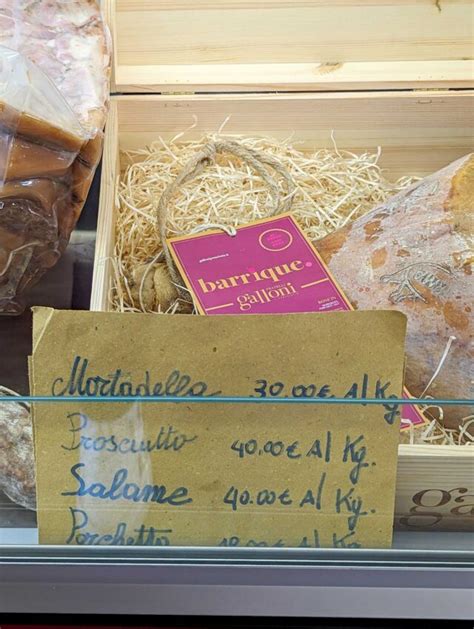 barrique.
galloni
Mortadella 30.00€ Al Kg.
Prosciutto 40.00€ Al Kg.
Salame 40.00€ Al Kg.
Porchetta
ga